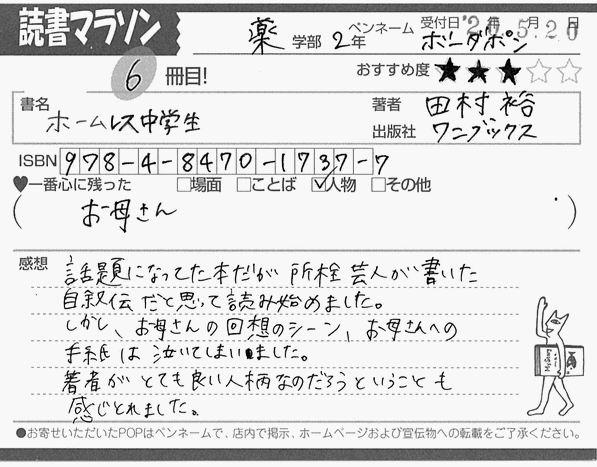 読書マラソン
薬 学部 2年 ペンネーム ボーダポン 受付日 '20年5月20日
6 冊目!
おすすめ度 ★★★☆☆
書名 ホームレス中学生
著者 田村 裕
出版社 ワニブックス
ISBN 978-4-8470-1737-7
♥一番心に残った □場面 □ことば ☑人物 □その他
( お母さん )
感想
話題になってた本だが 所栓 芸人が書いた
自叙伝だと思って読み始めました。
しかし、お母さんの回想のシーン、お母さんへの
手紙は泣いてしまいました。
著者がとても良い人柄なのだろうということも
感じとれました。
●お寄せいただいたPOPはペンネームで、店内で掲示、ホームページおよび宣伝物への転載をご了承ください。